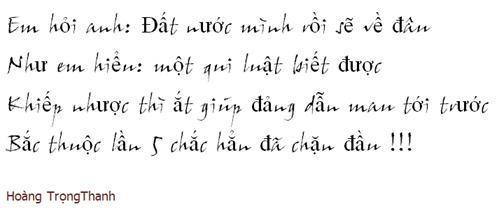 Em hỏi anh: Đất nước mình rồi sẽ về đâu
Như em hiểu: một qui luật biết được
Khiếp nhược thì ắt giúp đảng dẫn mau tới trước
Bắc thuộc lần 5 chắc hẳn đã chặn đầu !!!
Hoàng TrọngThanh